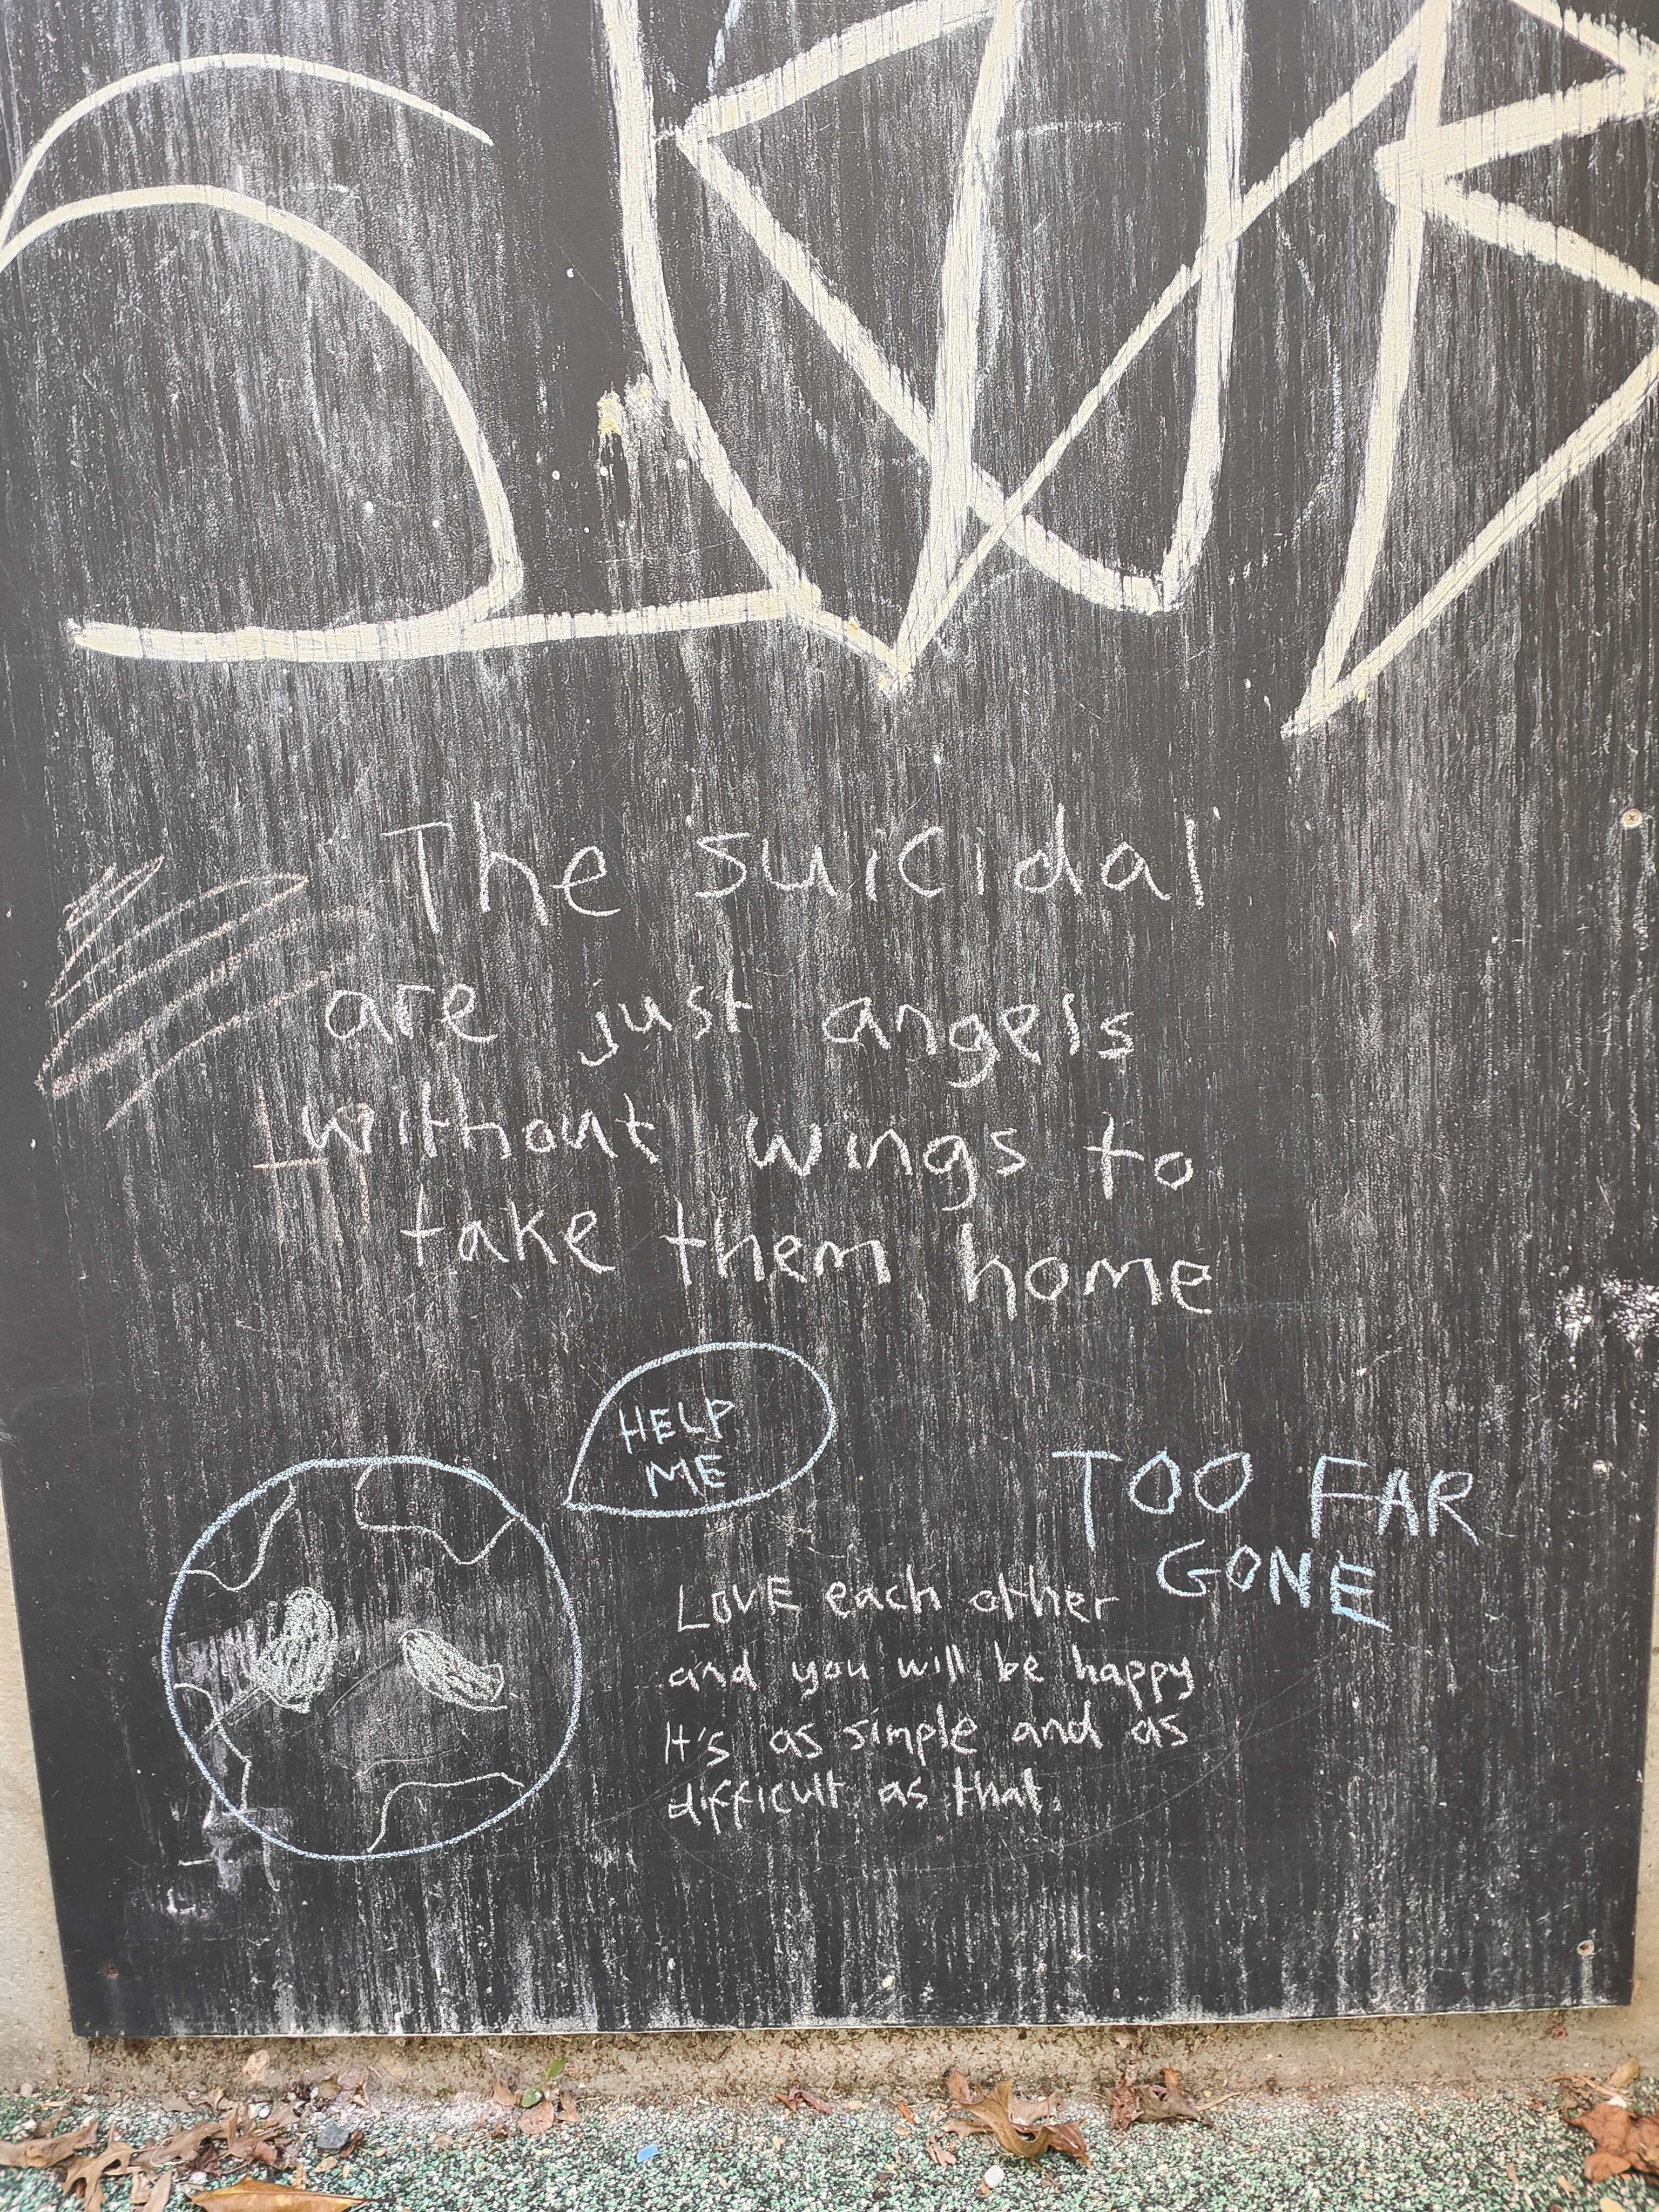 The suicidal
are just angels
without wings to
take them home
HELP
ME
TOO FAR
GONE
LOVE each other
and you will be happy
It's as simple and as
difficult as that.